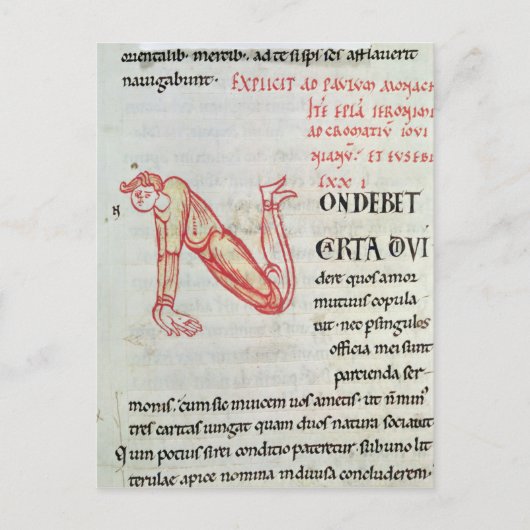 orientalib. mercib. ad te sispi ses afflauerit
nauigabunt.
EXPLICIT AD PAULUM MONACH
ITE EPLA IERONIMI
AD CROMATIU IOUI
NIANU. ET EUSEBI
LXXI
N
ON DEBET
CARTA DIVI
dere quos amor
mutuus copula
uit. nec p singulos
officia mei sunt
partienda ser
monis. cum sic inuicem uos ametis. ut n min
tres caritas iungat quam duos natura sociauit
Quin potius si rei conditio pateretur. sub uno lit
terulae apice nomina indiuisa concluderem.